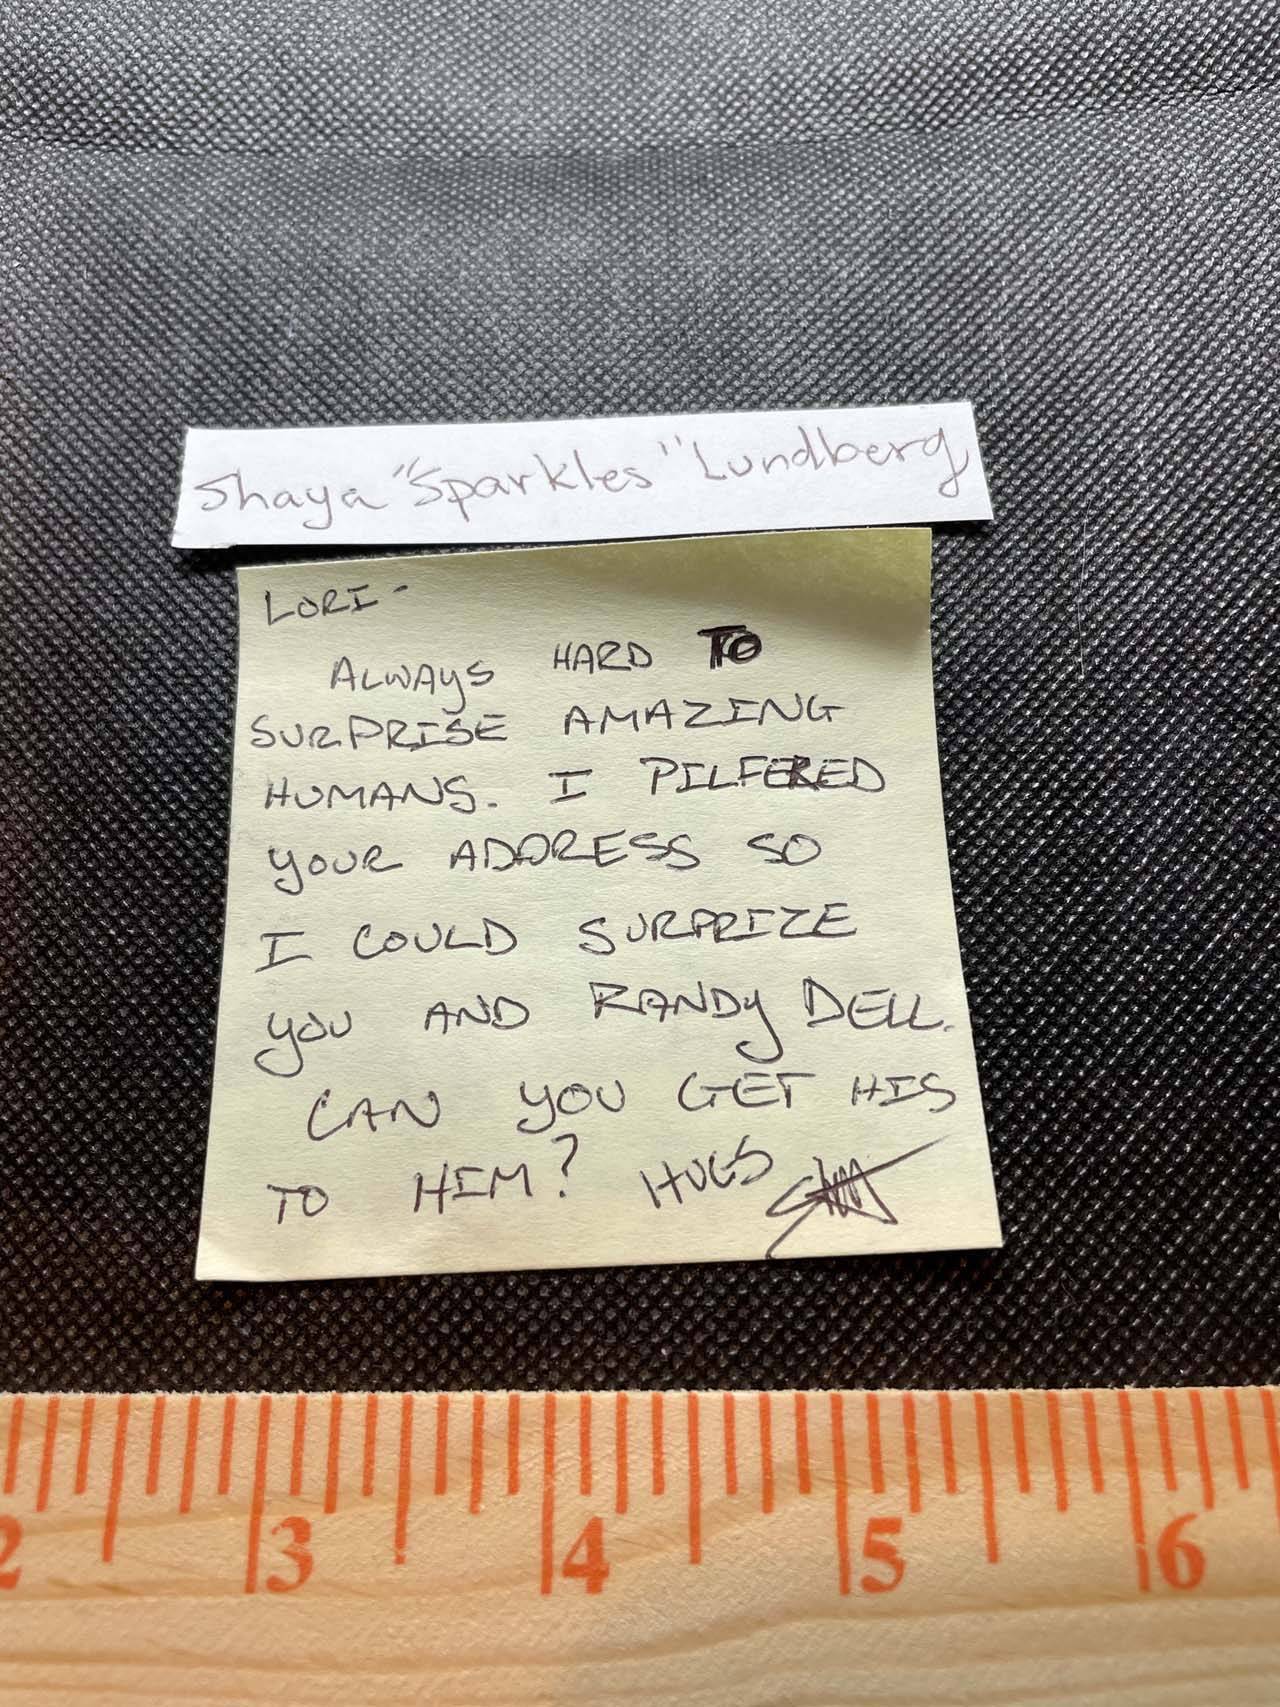 Shaya "Sparkles" Lundberg
LORI-
ALWAYS HARD TO
SURPRISE AMAZING
HUMANS. I PILFERED
YOUR ADDRESS SO
I COULD SURPRIZE
YOU AND RANDY DELL.
CAN YOU GET HIS
TO HIM? HUGS
2 3 4 5 6